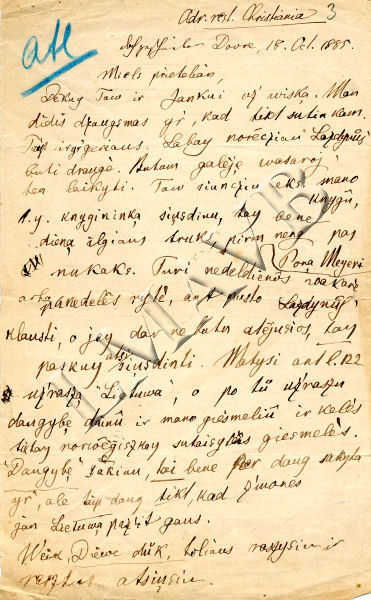 Adr. rest. Christiania 3
Dovre, 18. Oct. 1885.
Miels prietelau,
Dėkuy Taw ir Jankui už wiską. Man
didis džaugsmas yr', kad tikt sutinkam.
Taip ir geriaus. Labay norėcziau
buti draugè. Butum galėję wasaroj
ten laikyti. Taw siuncziu eks. mano
knygû,
1. y. knygininką siusdinu, tay bene
dieną ilgiaus truks, pirm neng pas
nukaks. Turi nedeldienos wakarè
Poną Meyerį
arba panedelės rytè, ant pusto
klausti, o jey dar ne butu atėjusios, tay
paskuy atsisiusdinti. Matysi ant l. 122
užraszą "Lietuwa", o po tû užraszu
daugybę dainû ir mano giesmeliû ir kelės
tiktay norwėgiszkoy sutaisytas giesmelės.
"Daugybę" sakiau, tai bene per daug sakyta
yr', ale taip daug tikt, kad žmonės
jau Lietuwą pažįt gaus.
Weid, Diewe duk, toliaus raszysiu ir
atsiųsiu.
LMAVB